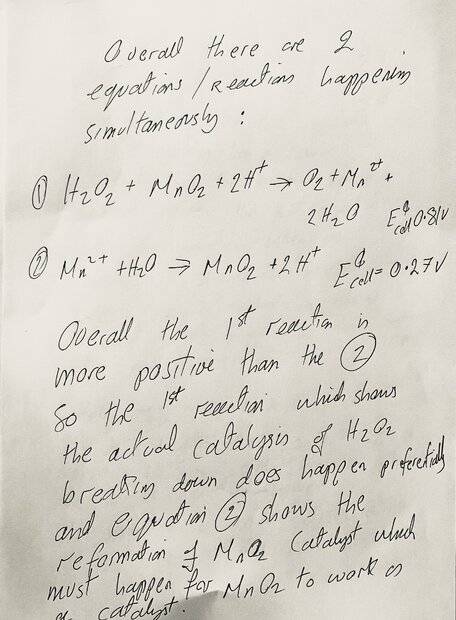 Overall there are 2
equations / reactions happening
simultaneously :
① H₂O₂ + MnO₂ + 2H⁺ → O₂ + Mn²⁺ +
2H₂O E⦵cell 0.81V
② Mn²⁺ + H₂O → MnO₂ + 2H⁺ E⦵cell = 0.27V
Overall the 1st reaction is
more positive than the ②
So the 1st reaction which shows
the actual catalysis of H₂O₂
breaking down does happen preferentially
and equation ② shows the
reformation of MnO₂ catalyst which
must happen for MnO₂ to work as
a catalyst.